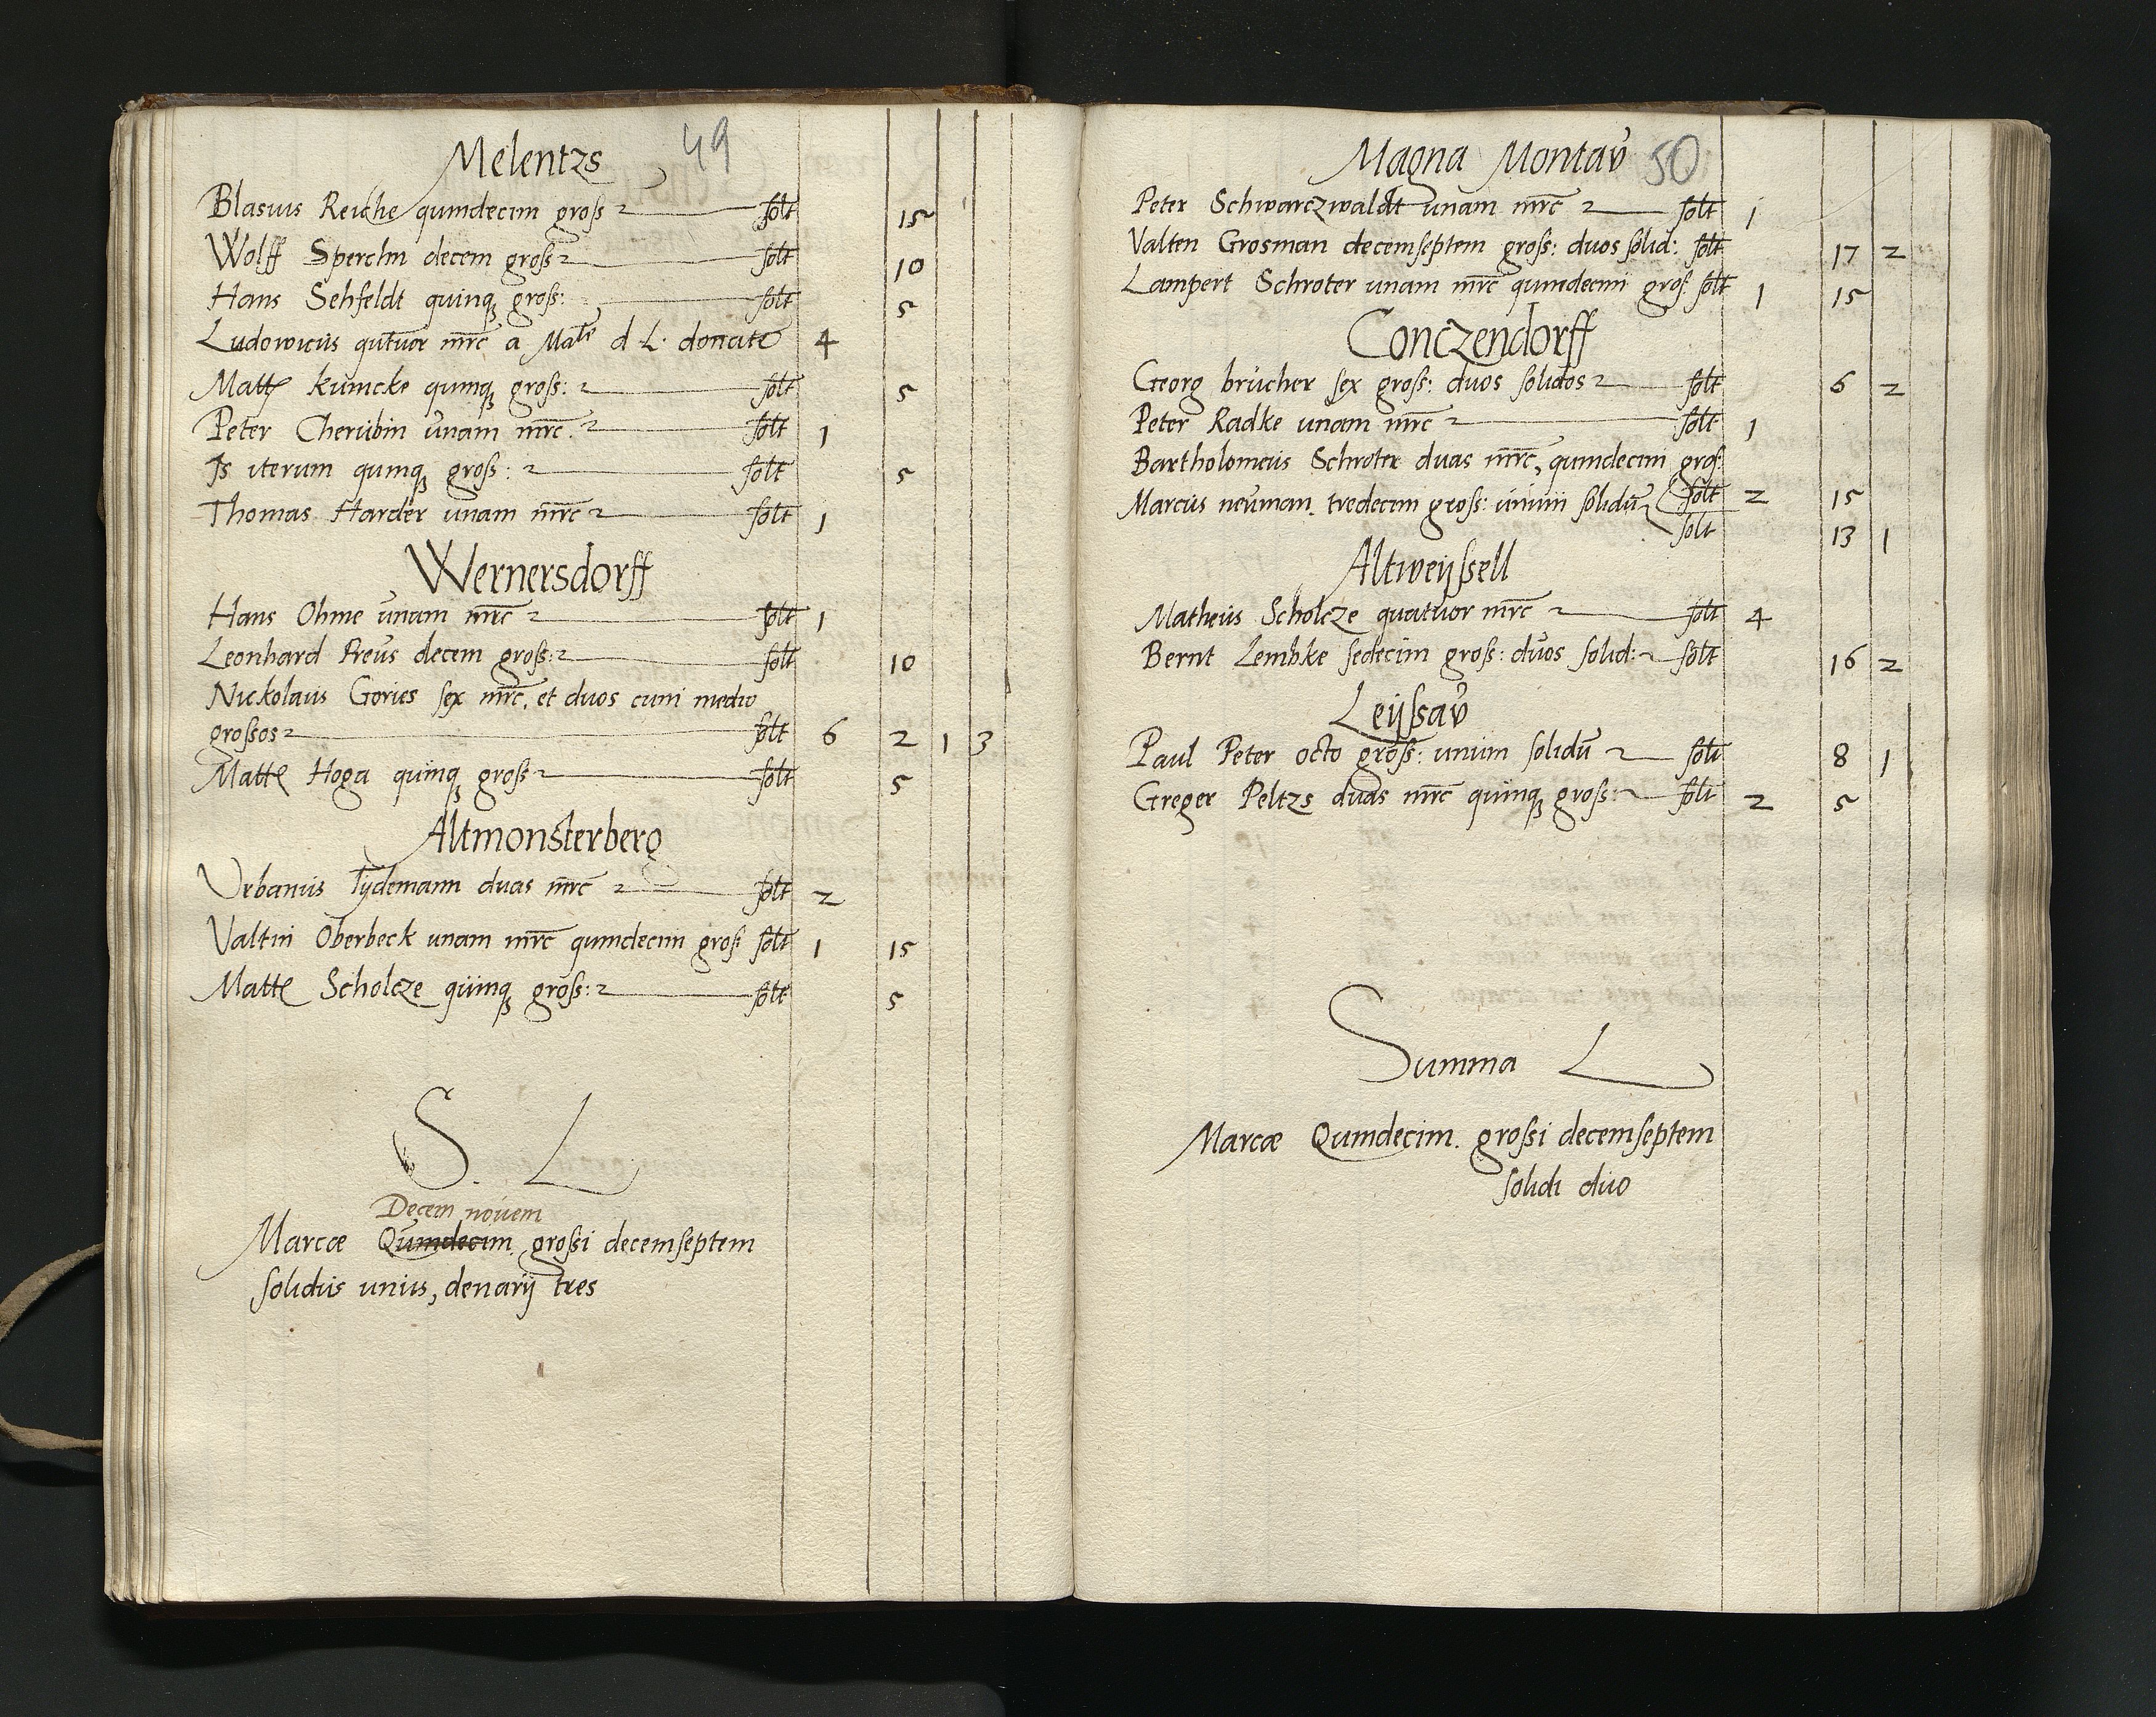 Melentzs 49
Blasius Reiche quindecim gross solt 15
Wolff Sperchn decem gross solt 10
Hans Sehfeldt quinq gross: solt 5
Ludowicus qutuor mrc a Mate d L. donate 4
Matt Kumcke quinq gross: solt 5
Peter Cherubin unam mrc. solt 1
Is iterum quinq gross: solt 5
Thomas Harder unam mrc solt 1
Wernersdorff
Hans Ohme unam mrc solt 1
Leonhard Preus decem gross: solt 10
Nickolaus Gories sex mrc. et duos cum medio
grossos solt 6 2 1 3
Matt Hoga quinq gross solt 5
Altmonsterberg
Urbanus Tydemann duas mrc solt 2
Valtin Oberbeck unam mrc quindecim gros solt 1 15
Matt Scholcze quinq gross: solt 5
S. L
Decem novem
Marcæ Quindecim. grossi decemseptem
solidus unus, denarij tres
Magna Montau 50
Peter Schwarczwaldt unam mrc solt 1
Valten Grosman decemseptem gross: duos solid: solt 17 2
Lampert Schroter unam mrc quindecim gros solt 1 15
Conczendorff
Georg brucher sex gross: duos solidos solt 6 2
Peter Radke unam mrc solt 1
Bartholomeus Schroter duas mrc, quindecim gros:
solt 2 15
Marcus neuman. tredecim gross: unum solidu
solt 13 1
Altweijssell
Matheus Scholcze quatuor mrc solt 4
Bernt Lembke sedecim gross: duos solid: solt 16 2
Leijssau
Paul Peter octo gross: unum solidu solt 8 1
Greger Peltzs duas mrc quinq gross: solt 2 5
Summa L
Marcæ Quindecim. grossi decemseptem
solidi duo